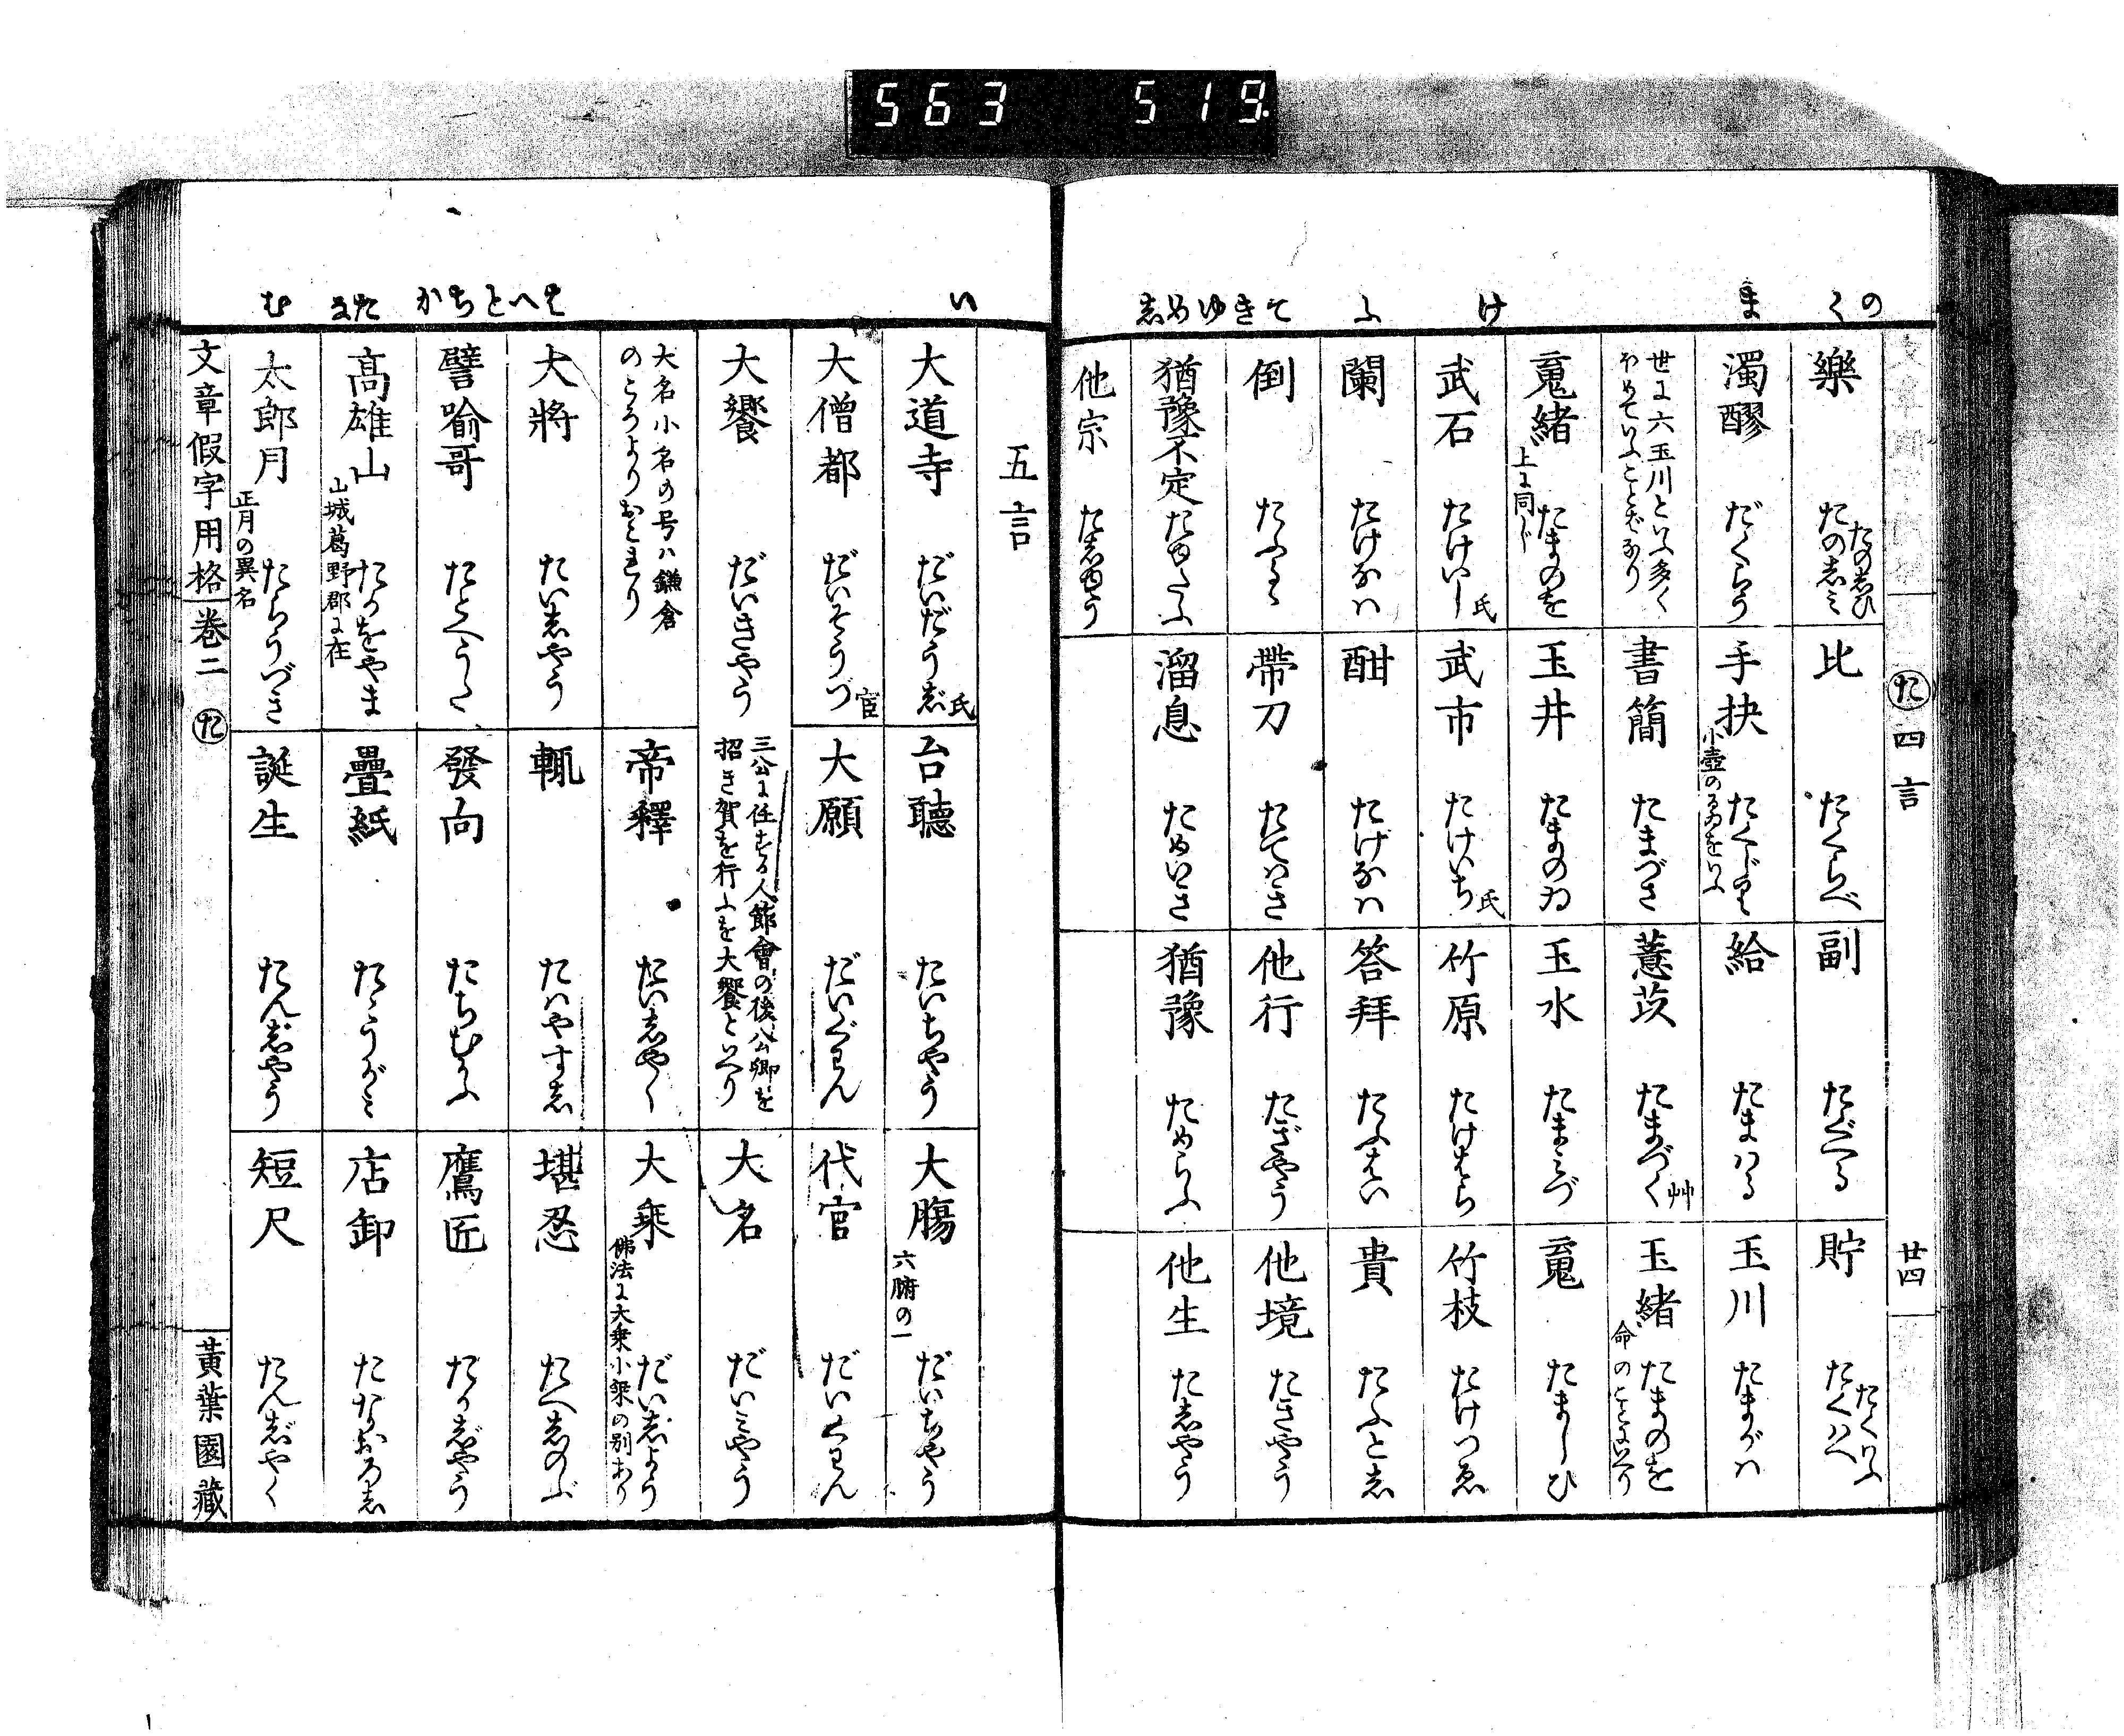 563 519.
のくまけふてきゆめし
た 四言 廿四
樂 たのしひ たのしミ
比 たくらべ
副 たぐへる
貯 たくハふ たくハへ
濁醪 だくらう
手抉 たくじり 小壺のるゐをいふ
給 たまハる
玉川 たまがハ
世に六玉川といふ多く
ほめていふことばなり
書簡 たまづさ
薏苡 たまづく 艸
玉緒 たまのを 命のことにいへり
䰟緒 たまのを 上に同じ
玉井 たまのゐ
玉水 たまミづ
䰟 たましひ
武石 たけいし 氏
武市 たけいち 氏
竹原 たけはら
竹枝 たけつゑ
闌 たけなハ
酣 たけなハ
答拜 たふはい
貴 たふとし
倒 たふるゝ
帶刀 たてハき
他行 たぎやう
他境 たきやう
猶豫不定 たゆたふ
溜息 ためいき
猶豫 ためらふ
他生 たしやう
他宗 たしゆう
いせへとちかたなむ
五言
大道寺 だいだうじ 氏
台聽 たいちやう
大膓 六腑の一 だいちやう
大僧都 だいそうづ 官
大願 だいぐわん
代官 だいくわん
大饗 だいきやう
三公に任ずる人節會の後公卿を
招き賀を行ふを大饗といへり
大名 だいミやう
大名小名の号ハ鎌倉
のころよりおこれり
帝釋 たいしやく
大乗 だいじよう 佛法に大乗小乗の別あり
大將 たいしやう
輒 たハやすし
堪忍 たへしのぶ
譬喩哥 たとへうた
發向 たちむかふ
鷹匠 たかじやう
髙雄山 たかをやま 山城葛野郡に在
疊紙 たゝうがミ
店卸 たなおろし
太郎月 たらうづき 正月の異名
誕生 たんじやう
短尺 たんじやく
文章假字用格 卷二 た 黃葉園藏